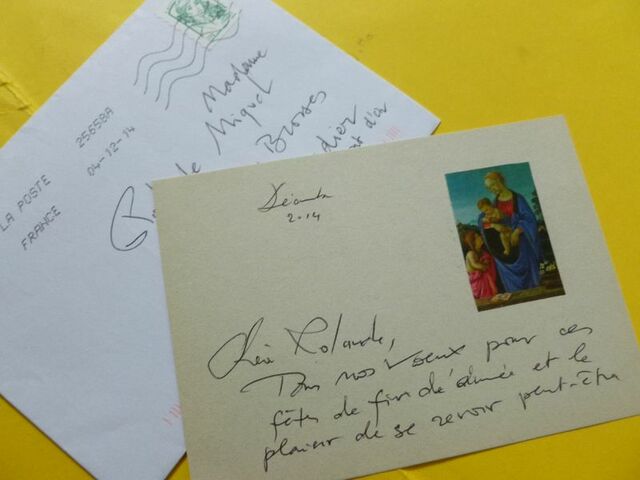 LA POSTE 25658A
FRANCE 04-12-14
Madame
Rolande Miguel
Brosses
d'or
Décembre
2.14
Chère Rolande,
Tous nos vœux pour ces
fêtes de fin d'année et le
plaisir de se revoir peut-être